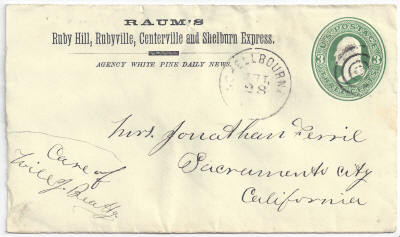 RAUM'S
Ruby Hill, Rubyville, Centerville and Shelburn Express.
AGENCY WHITE PINE DAILY NEWS.
U.S. POSTAGE
3 3
SHELLBOURNE
28
Mrs. Jonathan
Sacramento City
California
Care of